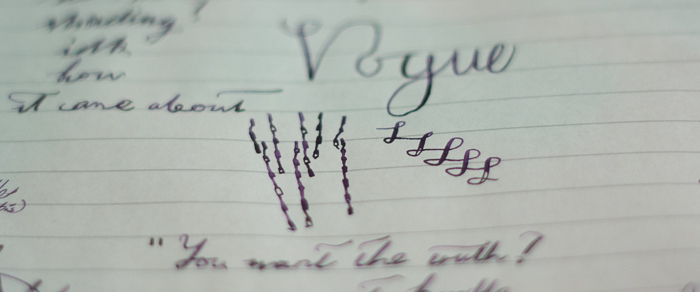 shading?
with
how
it came about
Vogue
"You want the truth!